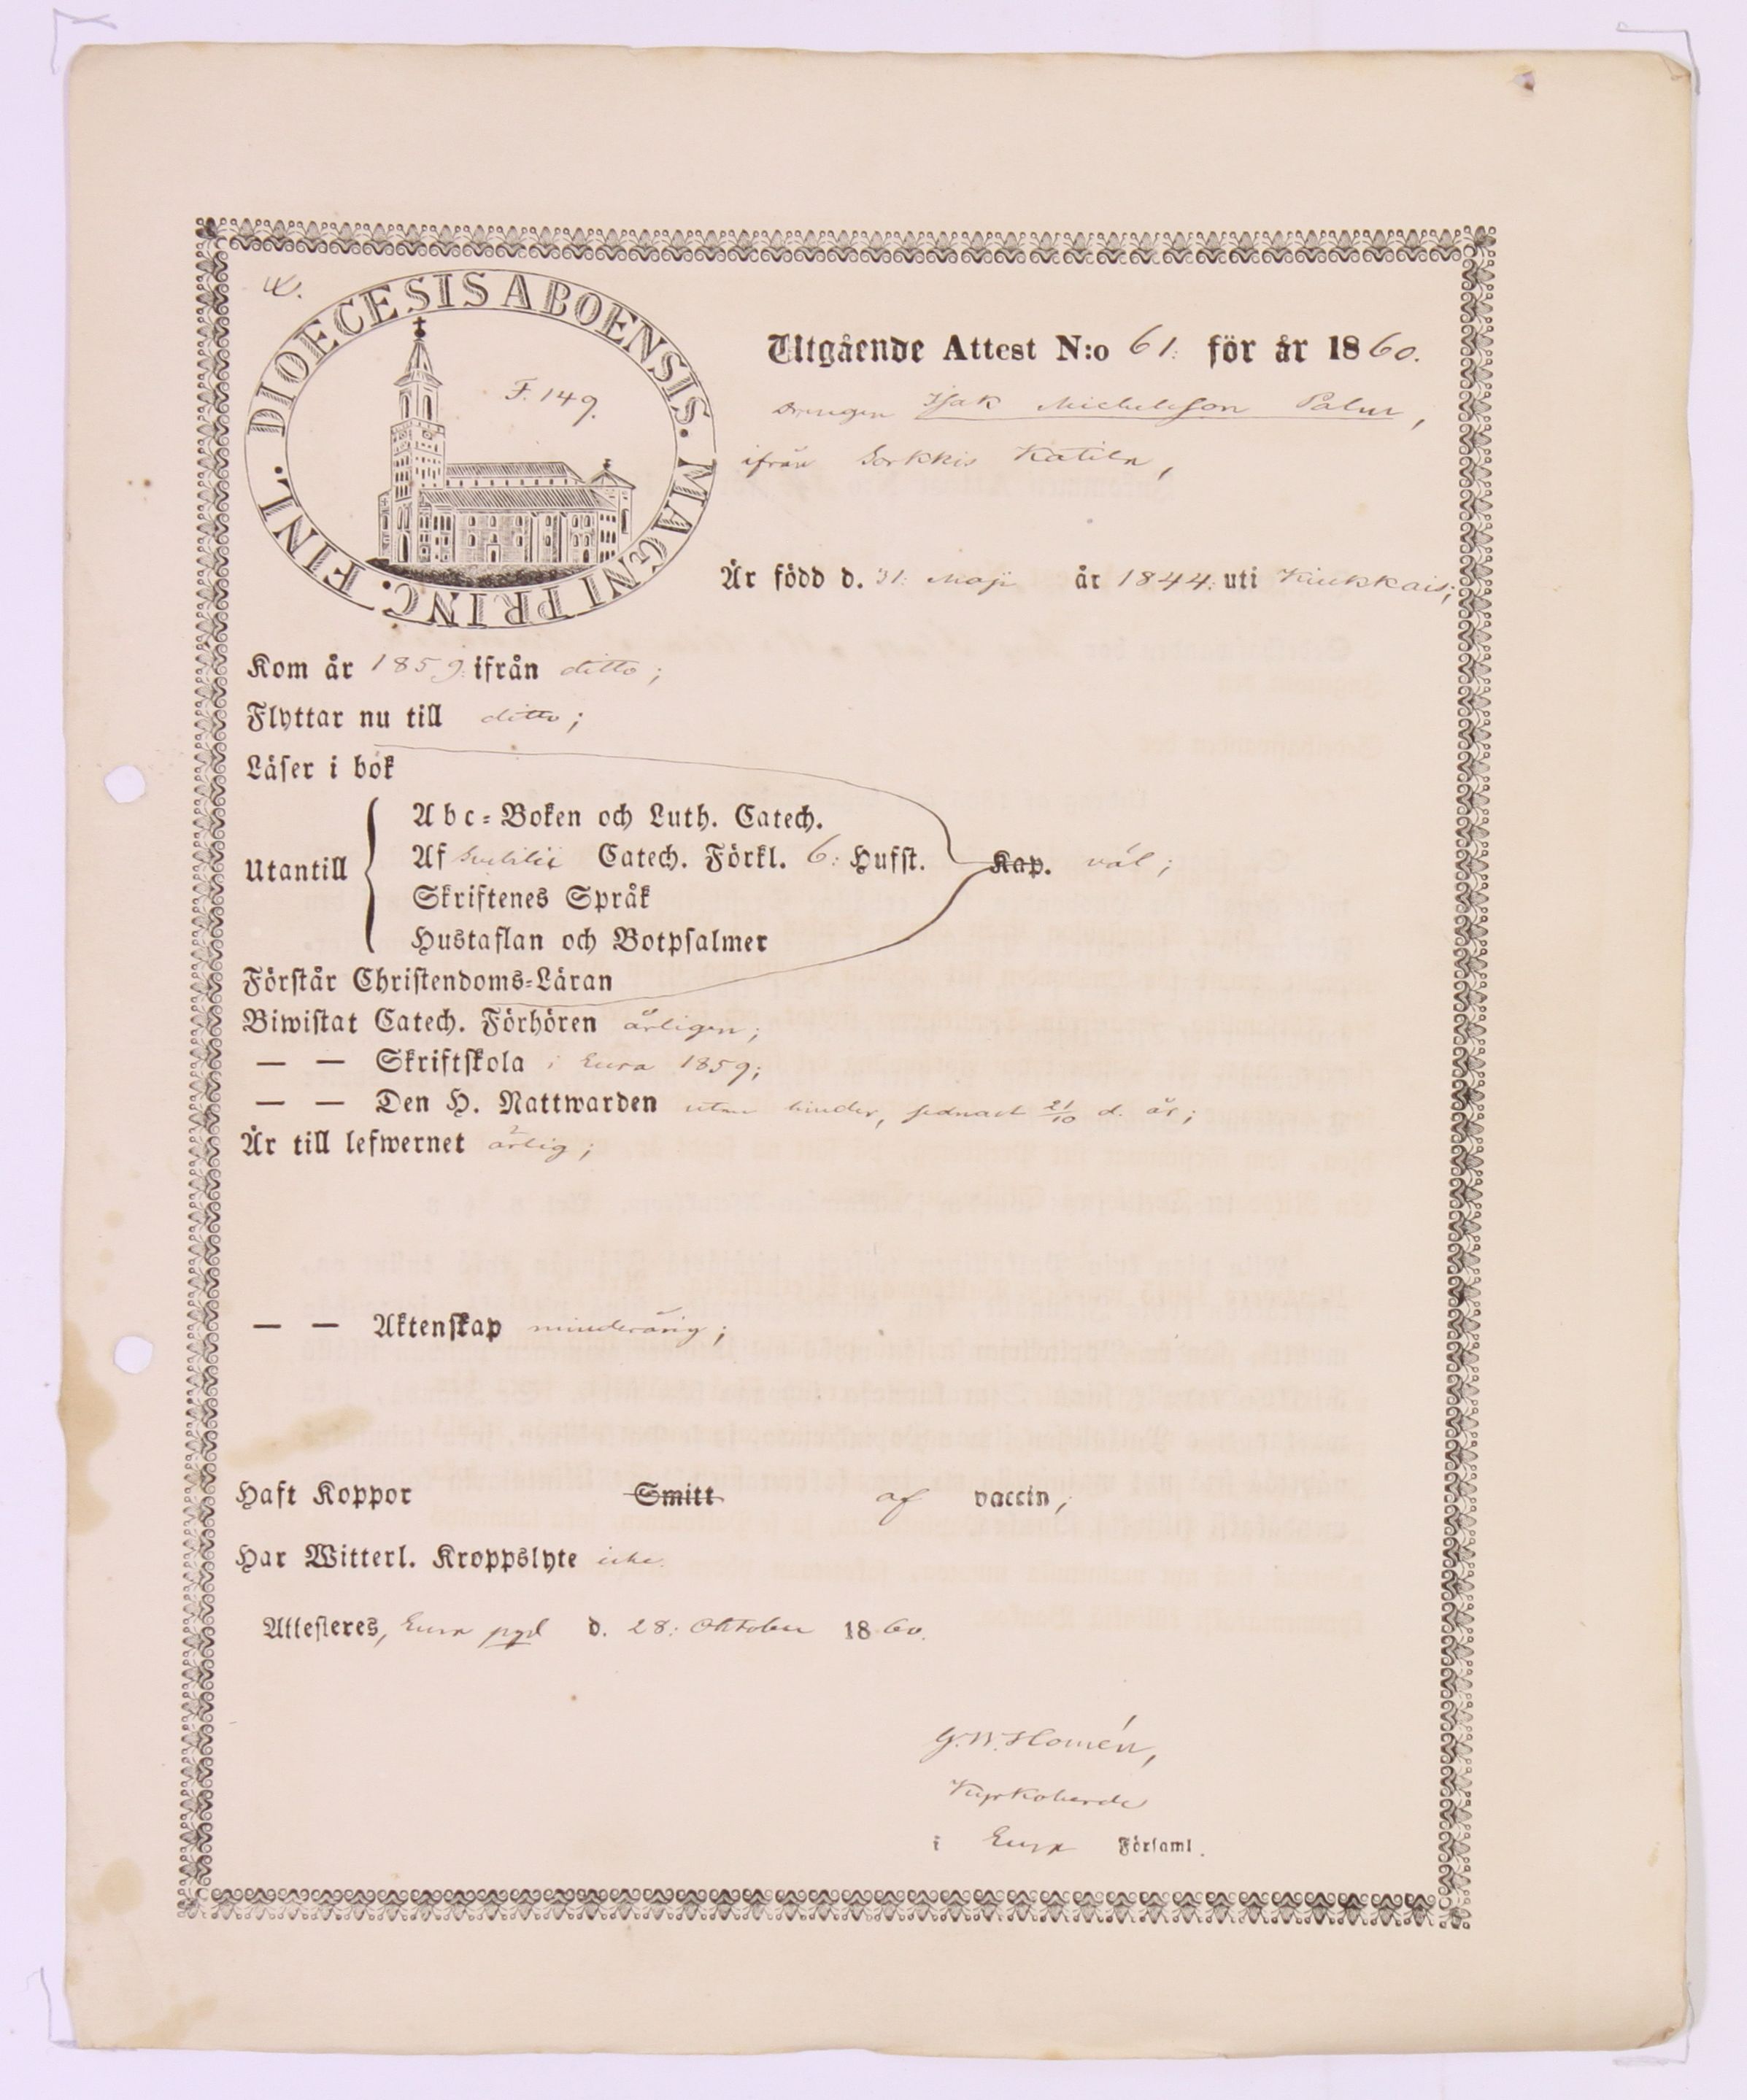 DIOECESIS ABOENSIS. MAGNI PRINC. FINL.
F. 149.
Utgående Attest N:o 61. för år 1860.
Drengen Isak Michelsson Palm,
ifrån Sorkkis Katila,
Är född d. 31. Maji år 1844. uti Kiukkais;
Kom år 1859. ifrån ditto;
Flyttar nu till ditto;
Läser i bok
Utantill
Abc-Boken och Luth. Catech.
Af Svebilii Catech. Förkl. 6: Hufst. Kap. väl;
Skriftenes Språk
Hustaflan och Botpsalmer
Förstår Christendoms-Läran
Biwistat Catech. Förhören årligen;
— — Skriftskola i Eura 1859;
— — Den H. Nattwarden utan hinder, sednast 21/10 d. år;
Är till lefwernet ärlig;
— — Äktenskap minderårig;
Haft Koppor Smitt af vaccin;
Har Witterl. Kroppslyte icke.
Attesteres, Eura pgd d. 28. Oktober 1860.
G. W. Homén,
Kyrkoherde
i Eura Församl.